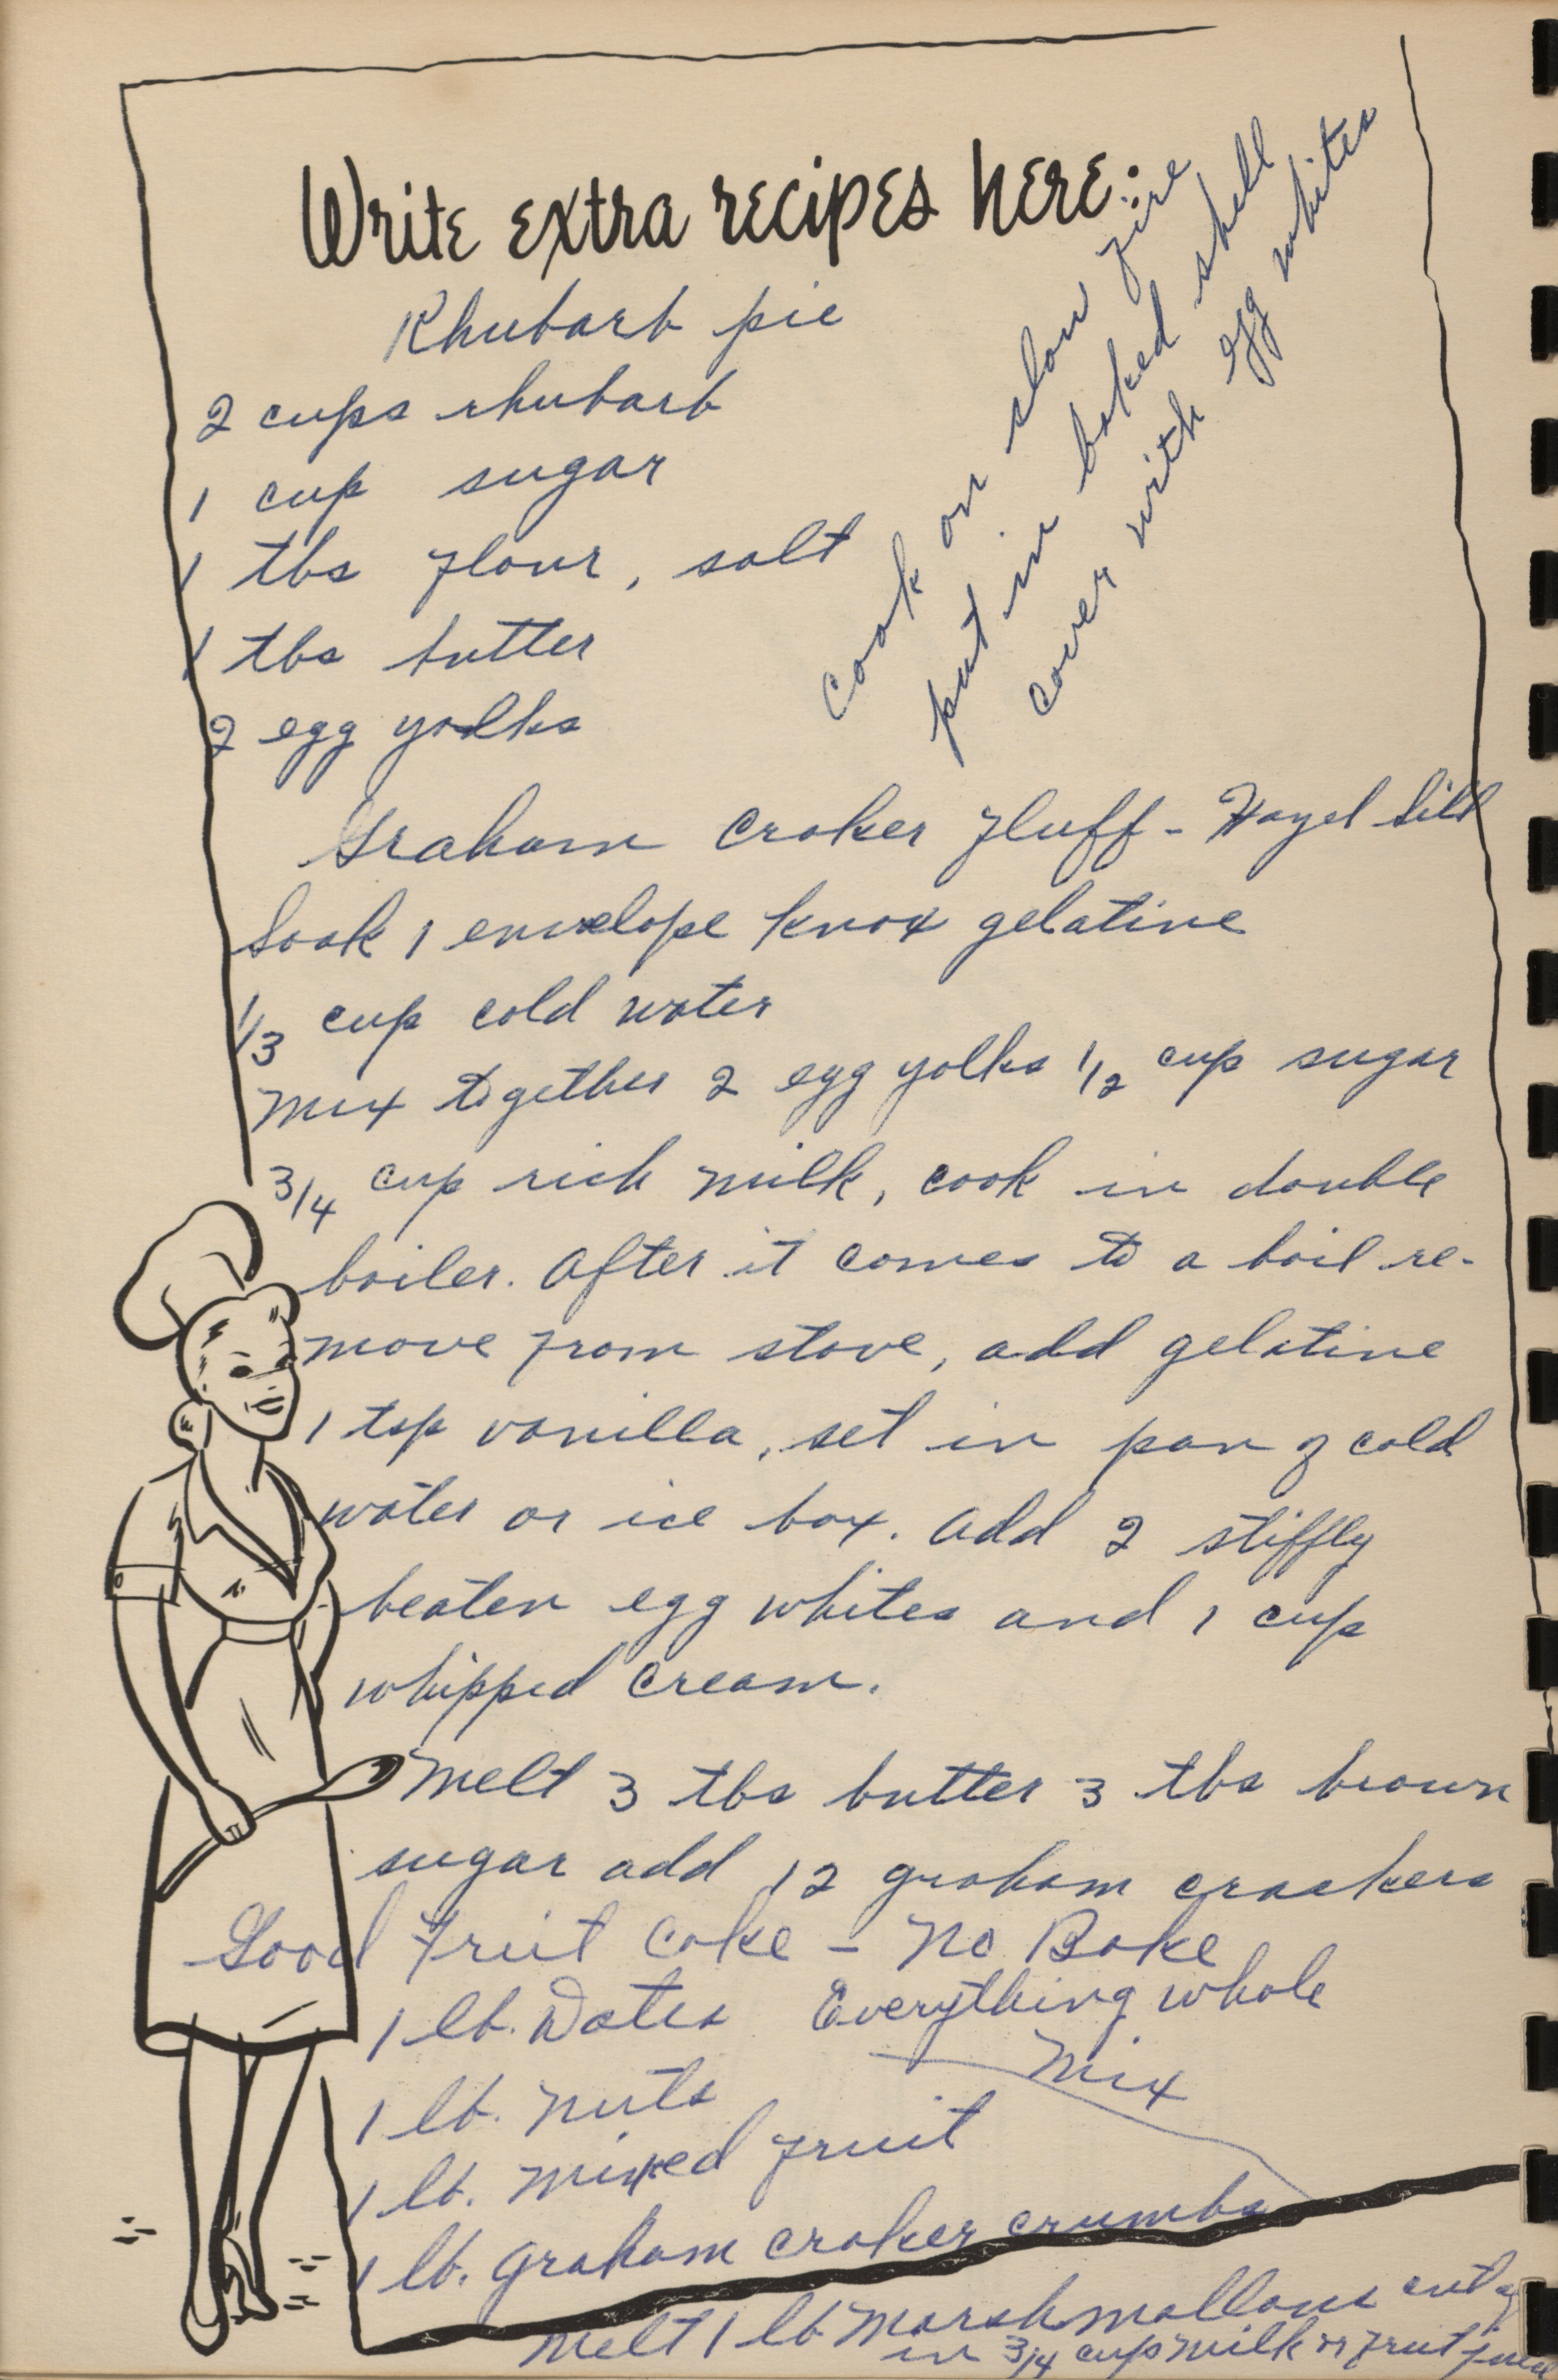 Write extra recipes here:
Rhubarb pie
2 cups rhubarb
1 cup sugar
1 tbs flour, salt
1 tbs butter
2 egg yolks
Cook on slow fire
put in baked shell
cover with egg whites
Graham Craker Fluff - Hazel
Soak 1 envelope Knox gelatine
1/3 cup cold water
Mix together 2 egg yolks 1/2 cup sugar
3/4 cup rich milk, cook in double
boiler. After it comes to a boil re-
move from stove, add gelatine
1 tsp vanilla, set in pan of cold
water or ice box. Add 2 stiffly
beaten egg whites and 1 cup
whipped cream.
Melt 3 tbs butter 3 tbs brown
sugar add 12 graham crackers
Good Fruit Cake - No Bake
1 lb. Dates Everything whole
Mix
1 lb. Nuts
1 lb. Mixed Fruit
1 lb. Graham craker crumbs
Melt 1 lb Marshmallows cut
in 3/4 cup milk or fruit juice